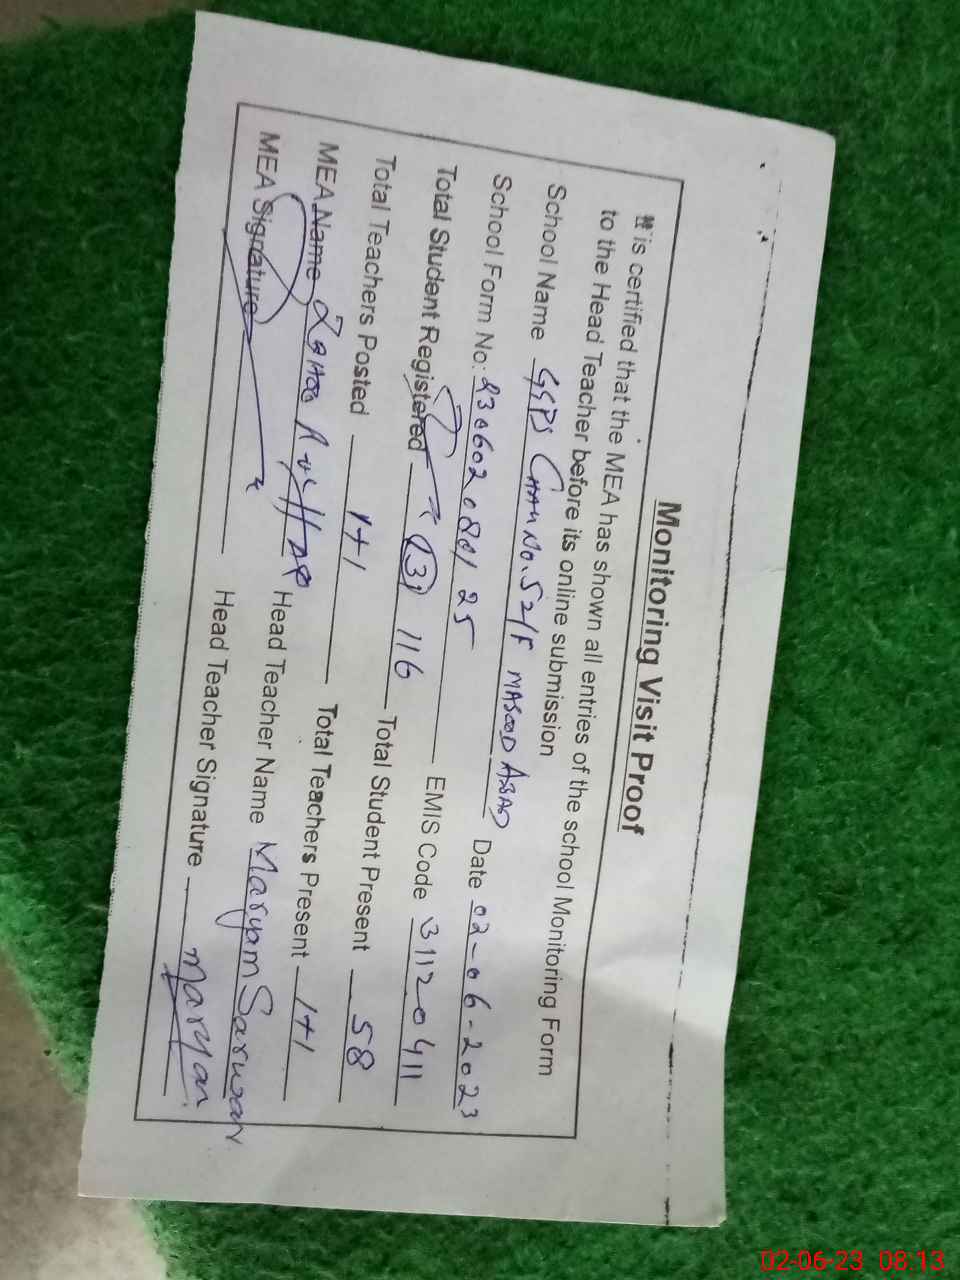 Monitoring Visit Proof
It is certified that the MEA has shown all entries of the school Monitoring Form
to the Head Teacher before its online submission
School Name GGPS CHAK No. 52/F MASOOD ABAD Date 02-06-2023
School Form No: 230602080125 EMIS Code 31120411
Total Student Registered 116 Total Student Present 58
Total Teachers Posted 1+1 Total Teachers Present 1+1
MEA Name Head Teacher Name Maryam Sarwar
MEA Signature Head Teacher Signature Maryam
02-06-23 08:13